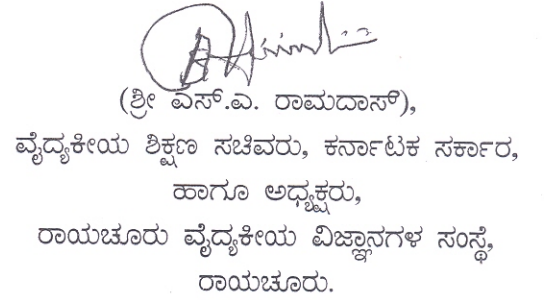 (ಶ್ರೀ ಎಸ್.ಎ. ರಾಮದಾಸ್),
ವೈದ್ಯಕೀಯ ಶಿಕ್ಷಣ ಸಚಿವರು, ಕರ್ನಾಟಕ ಸರ್ಕಾರ,
ಹಾಗೂ ಅಧ್ಯಕ್ಷರು,
ರಾಯಚೂರು ವೈದ್ಯಕೀಯ ವಿಜ್ಞಾನಗಳ ಸಂಸ್ಥೆ,
ರಾಯಚೂರು.